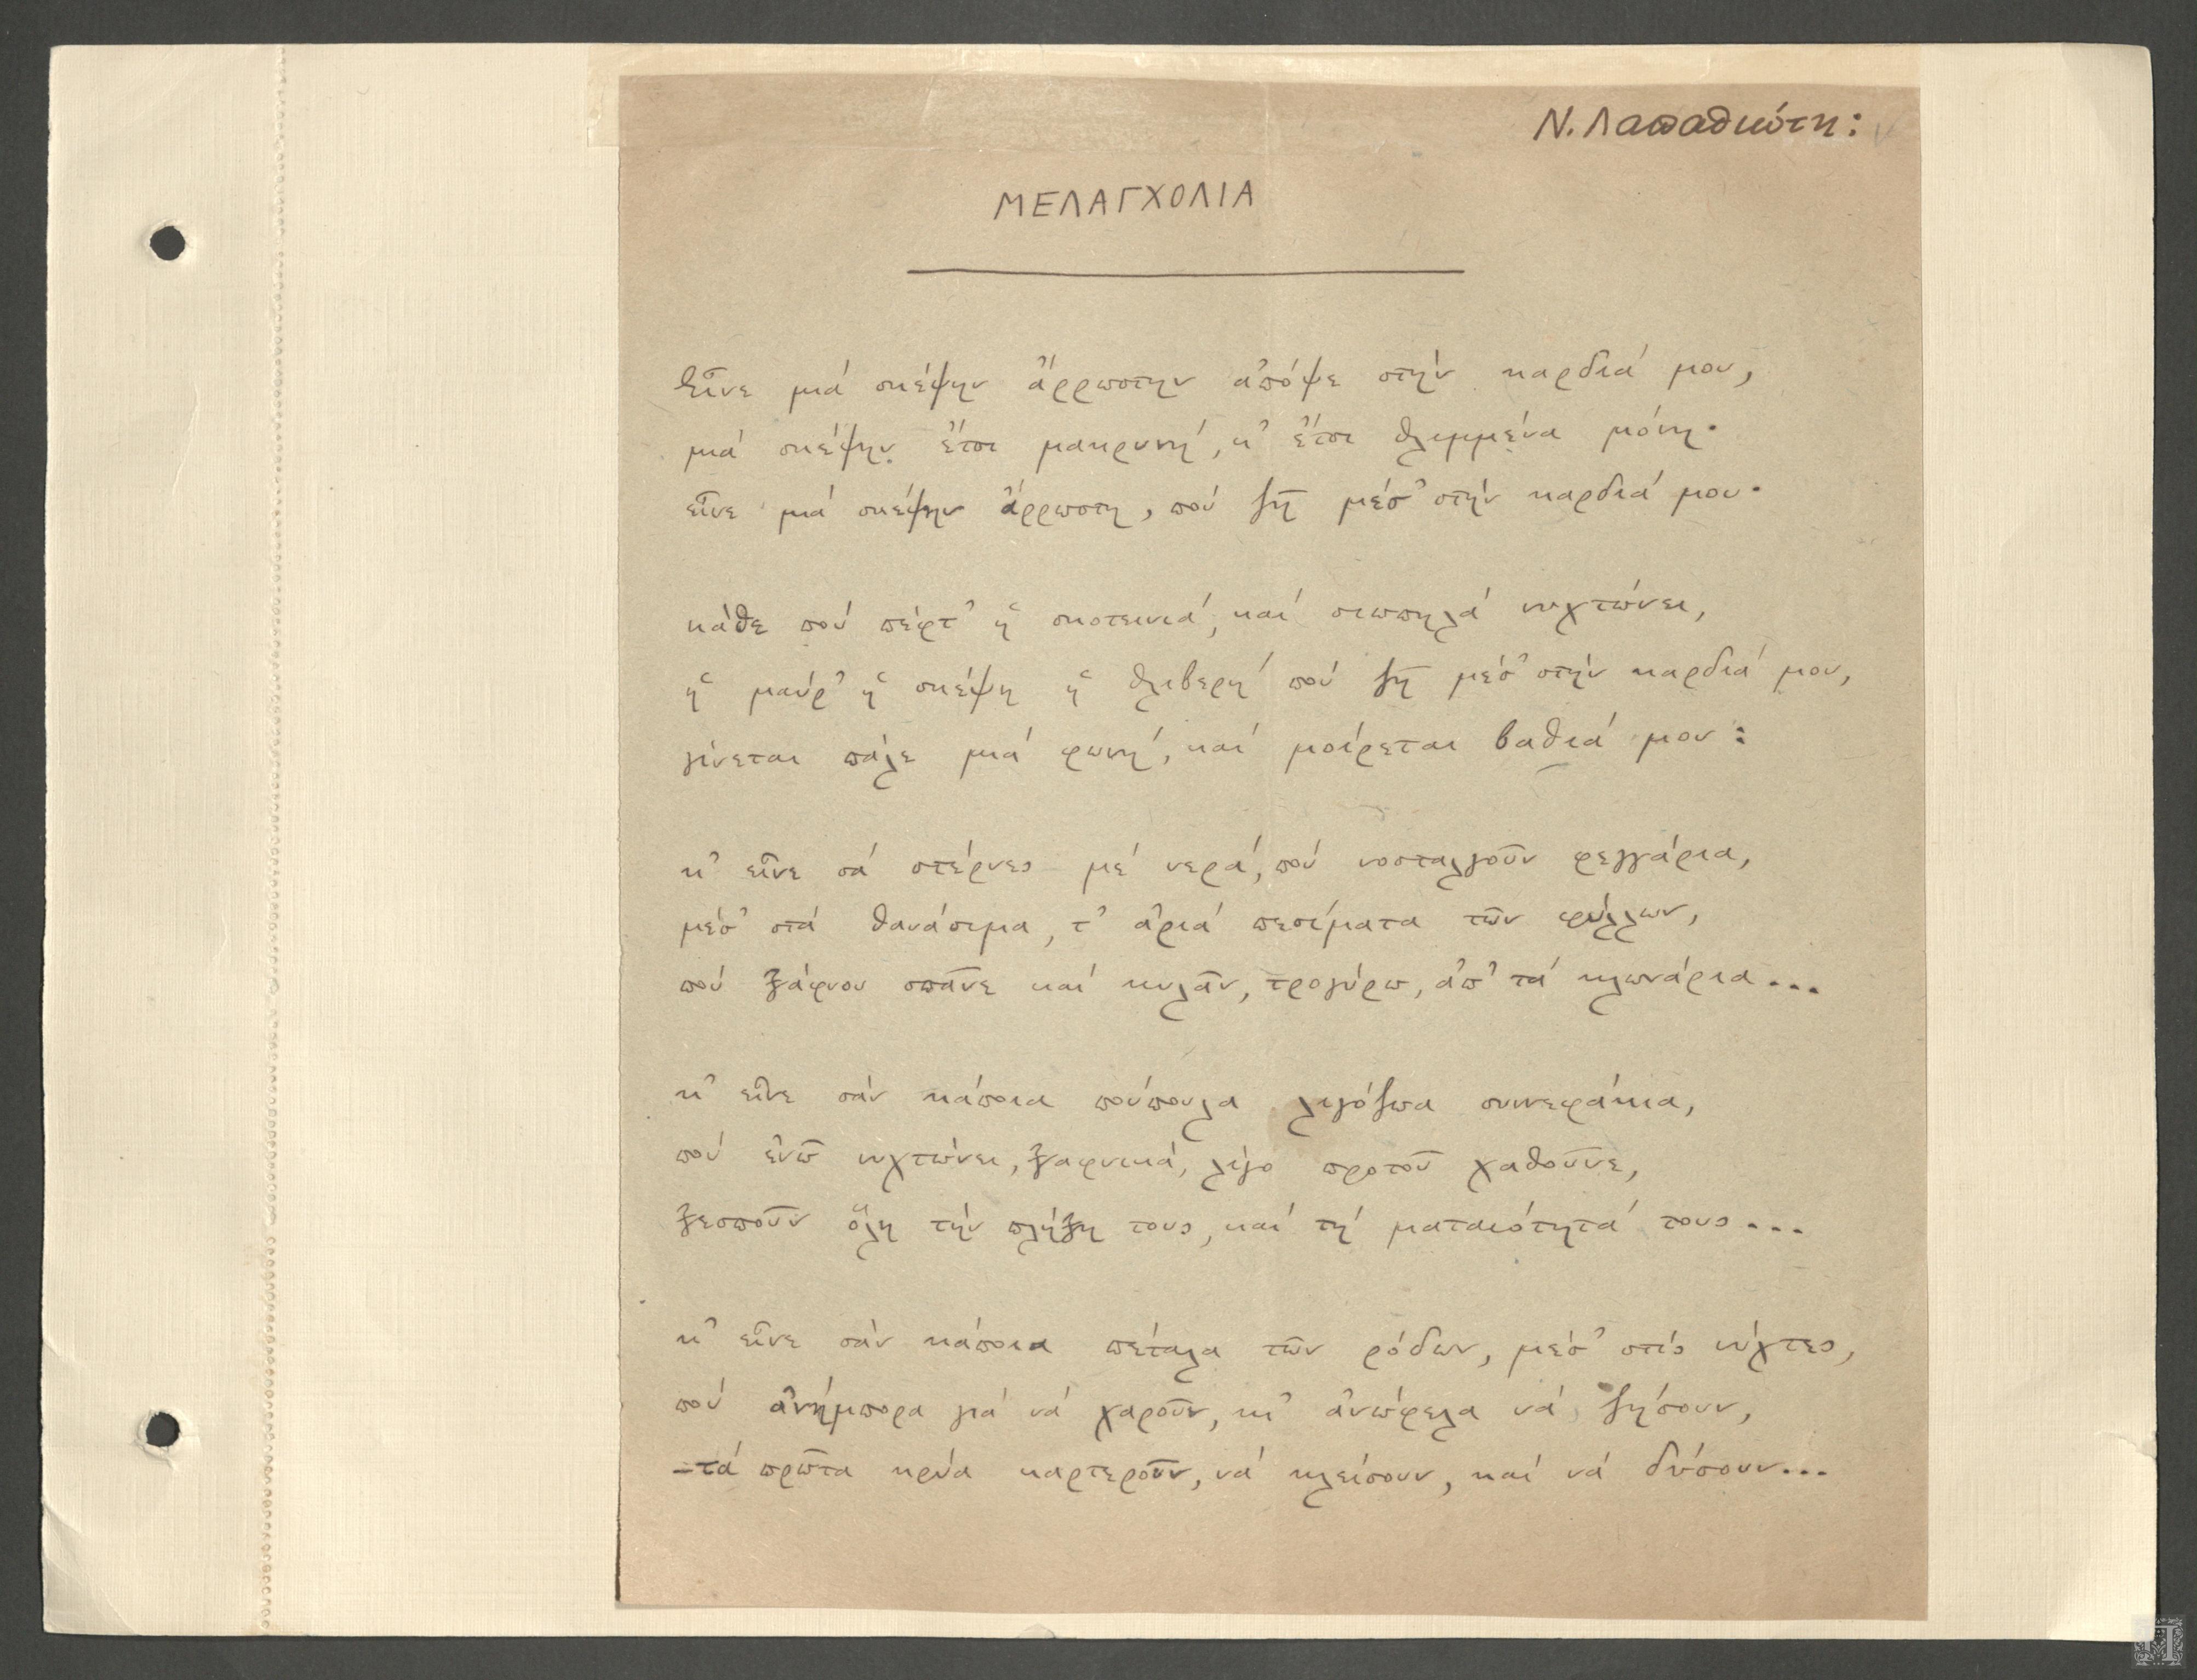 Ν. Λαπαθιώτη:
ΜΕΛΑΓΧΟΛΙΑ
Εἶνε μιά σκέψην ἄρρωστην ἀπόψε στήν καρδιά μου,
μιά σκέψην ἔτσι μακρυνή, κ᾿ ἔτσι θλιμμένα μόνη·
εἶνε μιά σκέψην ἄρρωστη, πού ζῇ μέσ᾿ στήν καρδιά μου·
κάθε πού πέφτ᾿ ἡ σκοτεινιά, καί σιωπηλά νυχτώνει,
ἡ μαύρ᾿ ἡ σκέψη ἡ θλιβερή πού ζῇ μέσ᾿ στήν καρδιά μου,
γίνεται πάλε μιά φωνή, καί μοίρεται βαθιά μου:
κ᾿ εἶνε σά στέρνες μέ νερά, πού νοσταλγοῦν φεγγάρια,
μέσ᾿ στά θανάσιμα, τ᾿ ἀριά πεσίματα τῶν φύλλων,
πού ξάφνου σπᾶνε καί κυλᾶν, τρογύρω, ἀπ᾿ τά κλωνάρια...
κ᾿ εἶνε σάν κάποια πούπουλα λιγόζωα συννεφάκια,
πού ἐνῶ νυχτώνει, ξαφνικά, λίγο προτοῦ χαθοῦνε,
ξεσποῦν ὅλη τήν πλήξη τους, καί τή ματαιότητά τους...
κ᾿ εἶνε σάν κάποια πέταλα τῶν ρόδων, μέσ᾿ στίς νύχτες,
πού ἀνήμπορα γιά νά χαροῦν, κι᾿ ἀνώφελα νά ζήσουν,
–τά πρῶτα κρύα καρτεροῦν, νά κλείσουν, καί νά δύσουν...